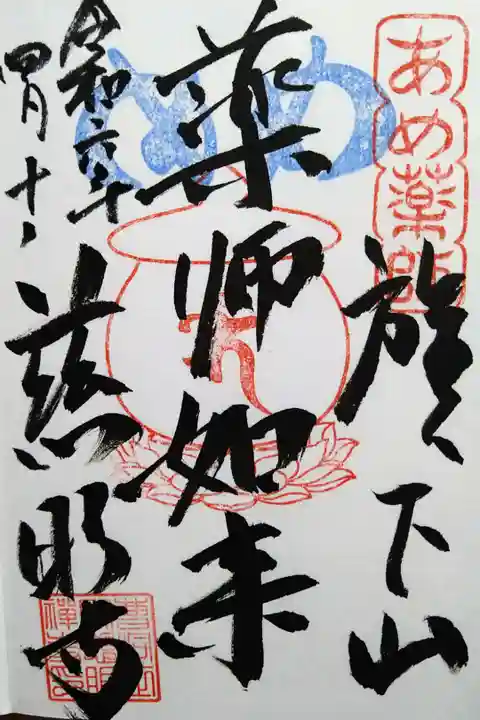 あめ薬師
下山
薬師如来
令和六年
四月十日
慈明寺
め
め